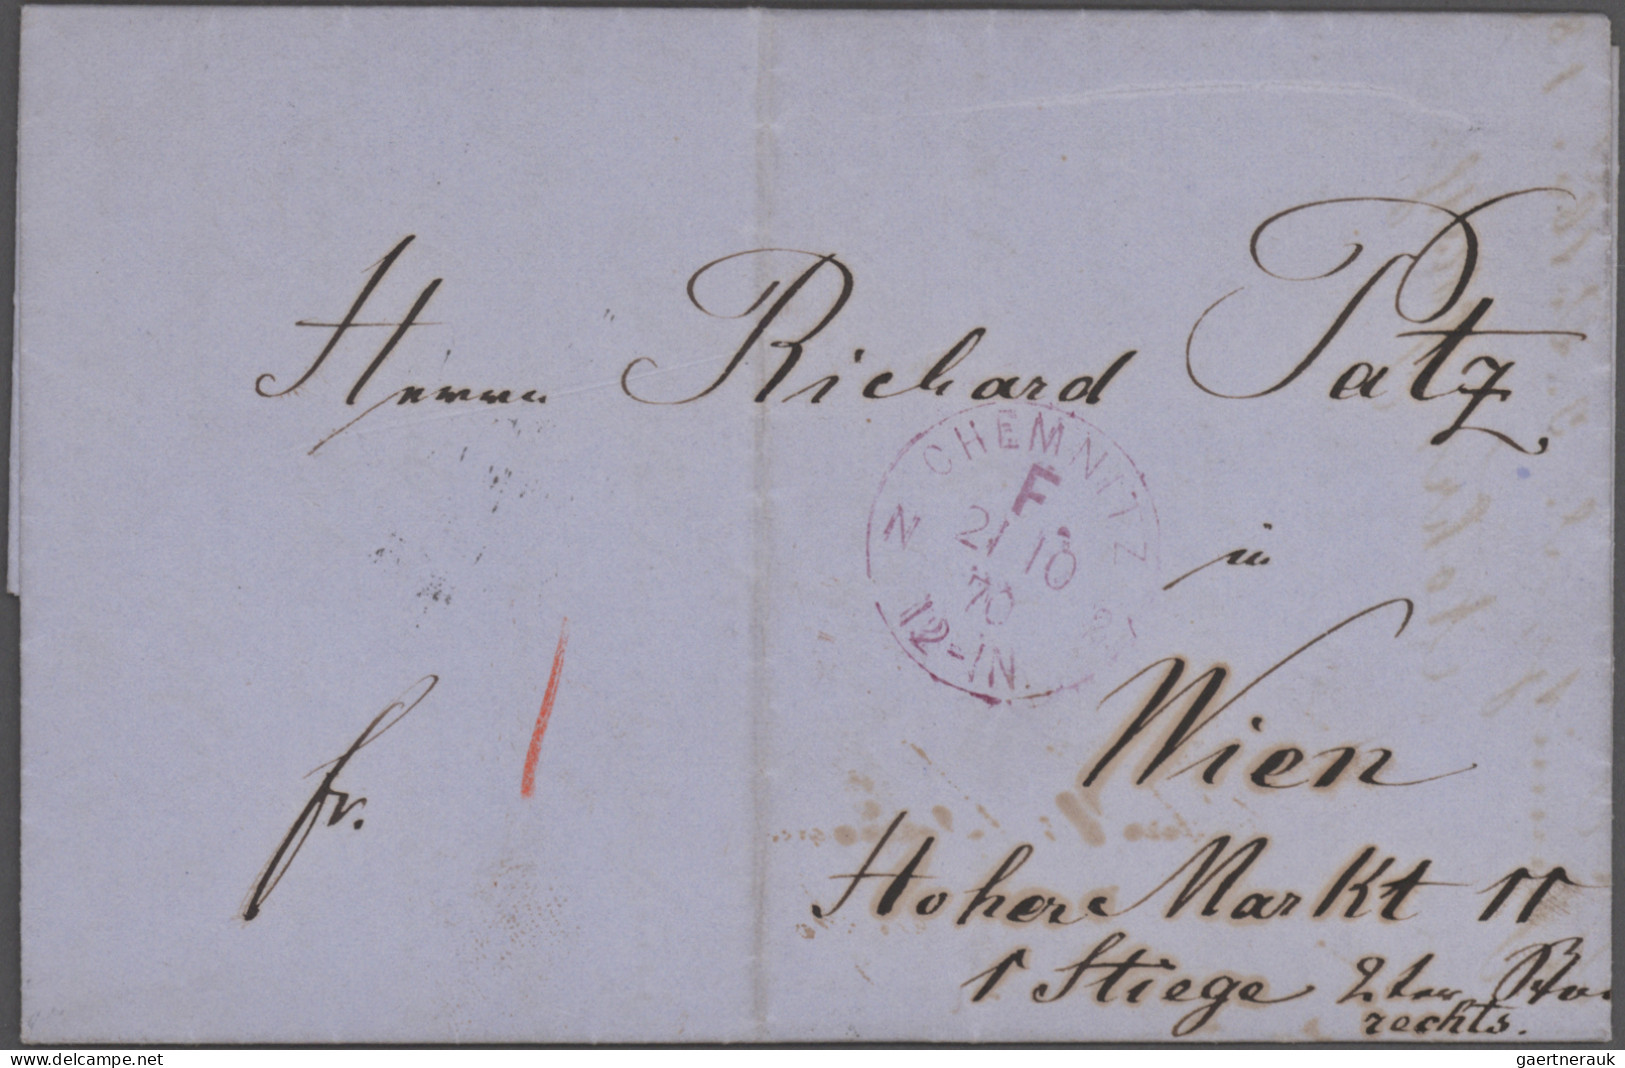 Herrn Richard Patz.
CHEMNITZ
F
21 10
70
N 12-1N.
in
Wien
fr.
Hohere Markt 11
1 Stiege 2ter
rechts.
delcampe.net
gaertnerauk